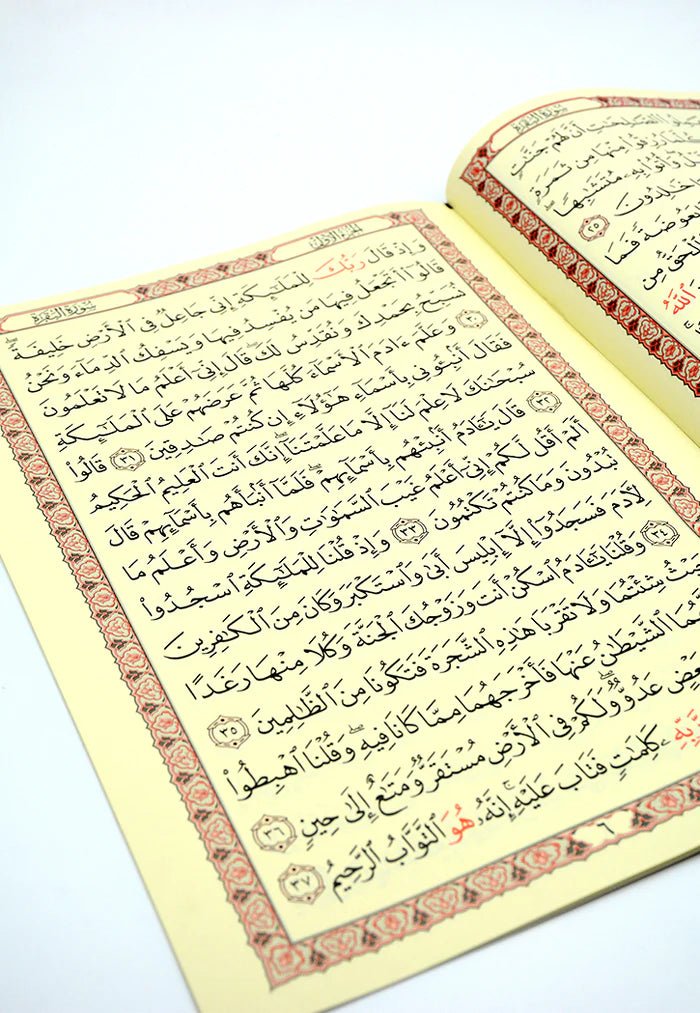 سُورَةُ البَقَرَةِ
ٱلصَّٰلِحَٰتِ أَنَّ لَهُمْ جَنَّٰتٍ
كُلَّمَا رُزِقُوا۟ مِنْهَا مِن ثَمَرَةٍ
وَأُتُوا۟ بِهِۦ مُتَشَٰبِهًا ۖ
خَٰلِدُونَ ٢٥
فَمَا
ٱلْحَقُّ مِن
ٱللَّهُ
الجزء الأول
سُورَةُ البَقَرَةِ
وَإِذْ قَالَ رَبُّكَ لِلْمَلَٰٓئِكَةِ إِنِّى جَاعِلٌ فِى ٱلْأَرْضِ خَلِيفَةً ۖ
قَالُوٓا۟ أَتَجْعَلُ فِيهَا مَن يُفْسِدُ فِيهَا وَيَسْفِكُ ٱلدِّمَآءَ وَنَحْنُ
نُسَبِّحُ بِحَمْدِكَ وَنُقَدِّسُ لَكَ ۖ قَالَ إِنِّىٓ أَعْلَمُ مَا لَا تَعْلَمُونَ
٣٠ وَعَلَّمَ ءَادَمَ ٱلْأَسْمَآءَ كُلَّهَا ثُمَّ عَرَضَهُمْ عَلَى ٱلْمَلَٰٓئِكَةِ
فَقَالَ أَنۢبِـُٔونِى بِأَسْمَآءِ هَٰٓؤُلَآءِ إِن كُنتُمْ صَٰدِقِينَ ٣١ قَالُوا۟
سُبْحَٰنَكَ لَا عِلْمَ لَنَآ إِلَّا مَا عَلَّمْتَنَآ ۖ إِنَّكَ أَنتَ ٱلْعَلِيمُ ٱلْحَكِيمُ
٣٢ قَالَ يَٰٓـَٔادَمُ أَنۢبِئْهُم بِأَسْمَآئِهِمْ ۖ فَلَمَّآ أَنۢبَأَهُم بِأَسْمَآئِهِمْ قَالَ
أَلَمْ أَقُل لَّكُمْ إِنِّىٓ أَعْلَمُ غَيْبَ ٱلسَّمَٰوَٰتِ وَٱلْأَرْضِ وَأَعْلَمُ مَا
تُبْدُونَ وَمَا كُنتُمْ تَكْتُمُونَ ٣٣ وَإِذْ قُلْنَا لِلْمَلَٰٓئِكَةِ ٱسْجُدُوا۟
لِـَٔادَمَ فَسَجَدُوٓا۟ إِلَّآ إِبْلِيسَ أَبَىٰ وَٱسْتَكْبَرَ وَكَانَ مِنَ ٱلْكَٰفِرِينَ
٣٤ وَقُلْنَا يَٰٓـَٔادَمُ ٱسْكُنْ أَنتَ وَزَوْجُكَ ٱلْجَنَّةَ وَكُلَا مِنْهَا رَغَدًا
شِئْتُمَا وَلَا تَقْرَبَا هَٰذِهِ ٱلشَّجَرَةَ فَتَكُونَا مِنَ ٱلظَّٰلِمِينَ ٣٥
ٱلشَّيْطَٰنُ عَنْهَا فَأَخْرَجَهُمَا مِمَّا كَانَا فِيهِ ۖ وَقُلْنَا ٱهْبِطُوا۟
عَدُوٌّ ۖ وَلَكُمْ فِى ٱلْأَرْضِ مُسْتَقَرٌّ وَمَتَٰعٌ إِلَىٰ حِينٍ ٣٦
كَلِمَٰتٍ فَتَابَ عَلَيْهِ ۚ إِنَّهُۥ هُوَ ٱلتَّوَّابُ ٱلرَّحِيمُ ٣٧
٦